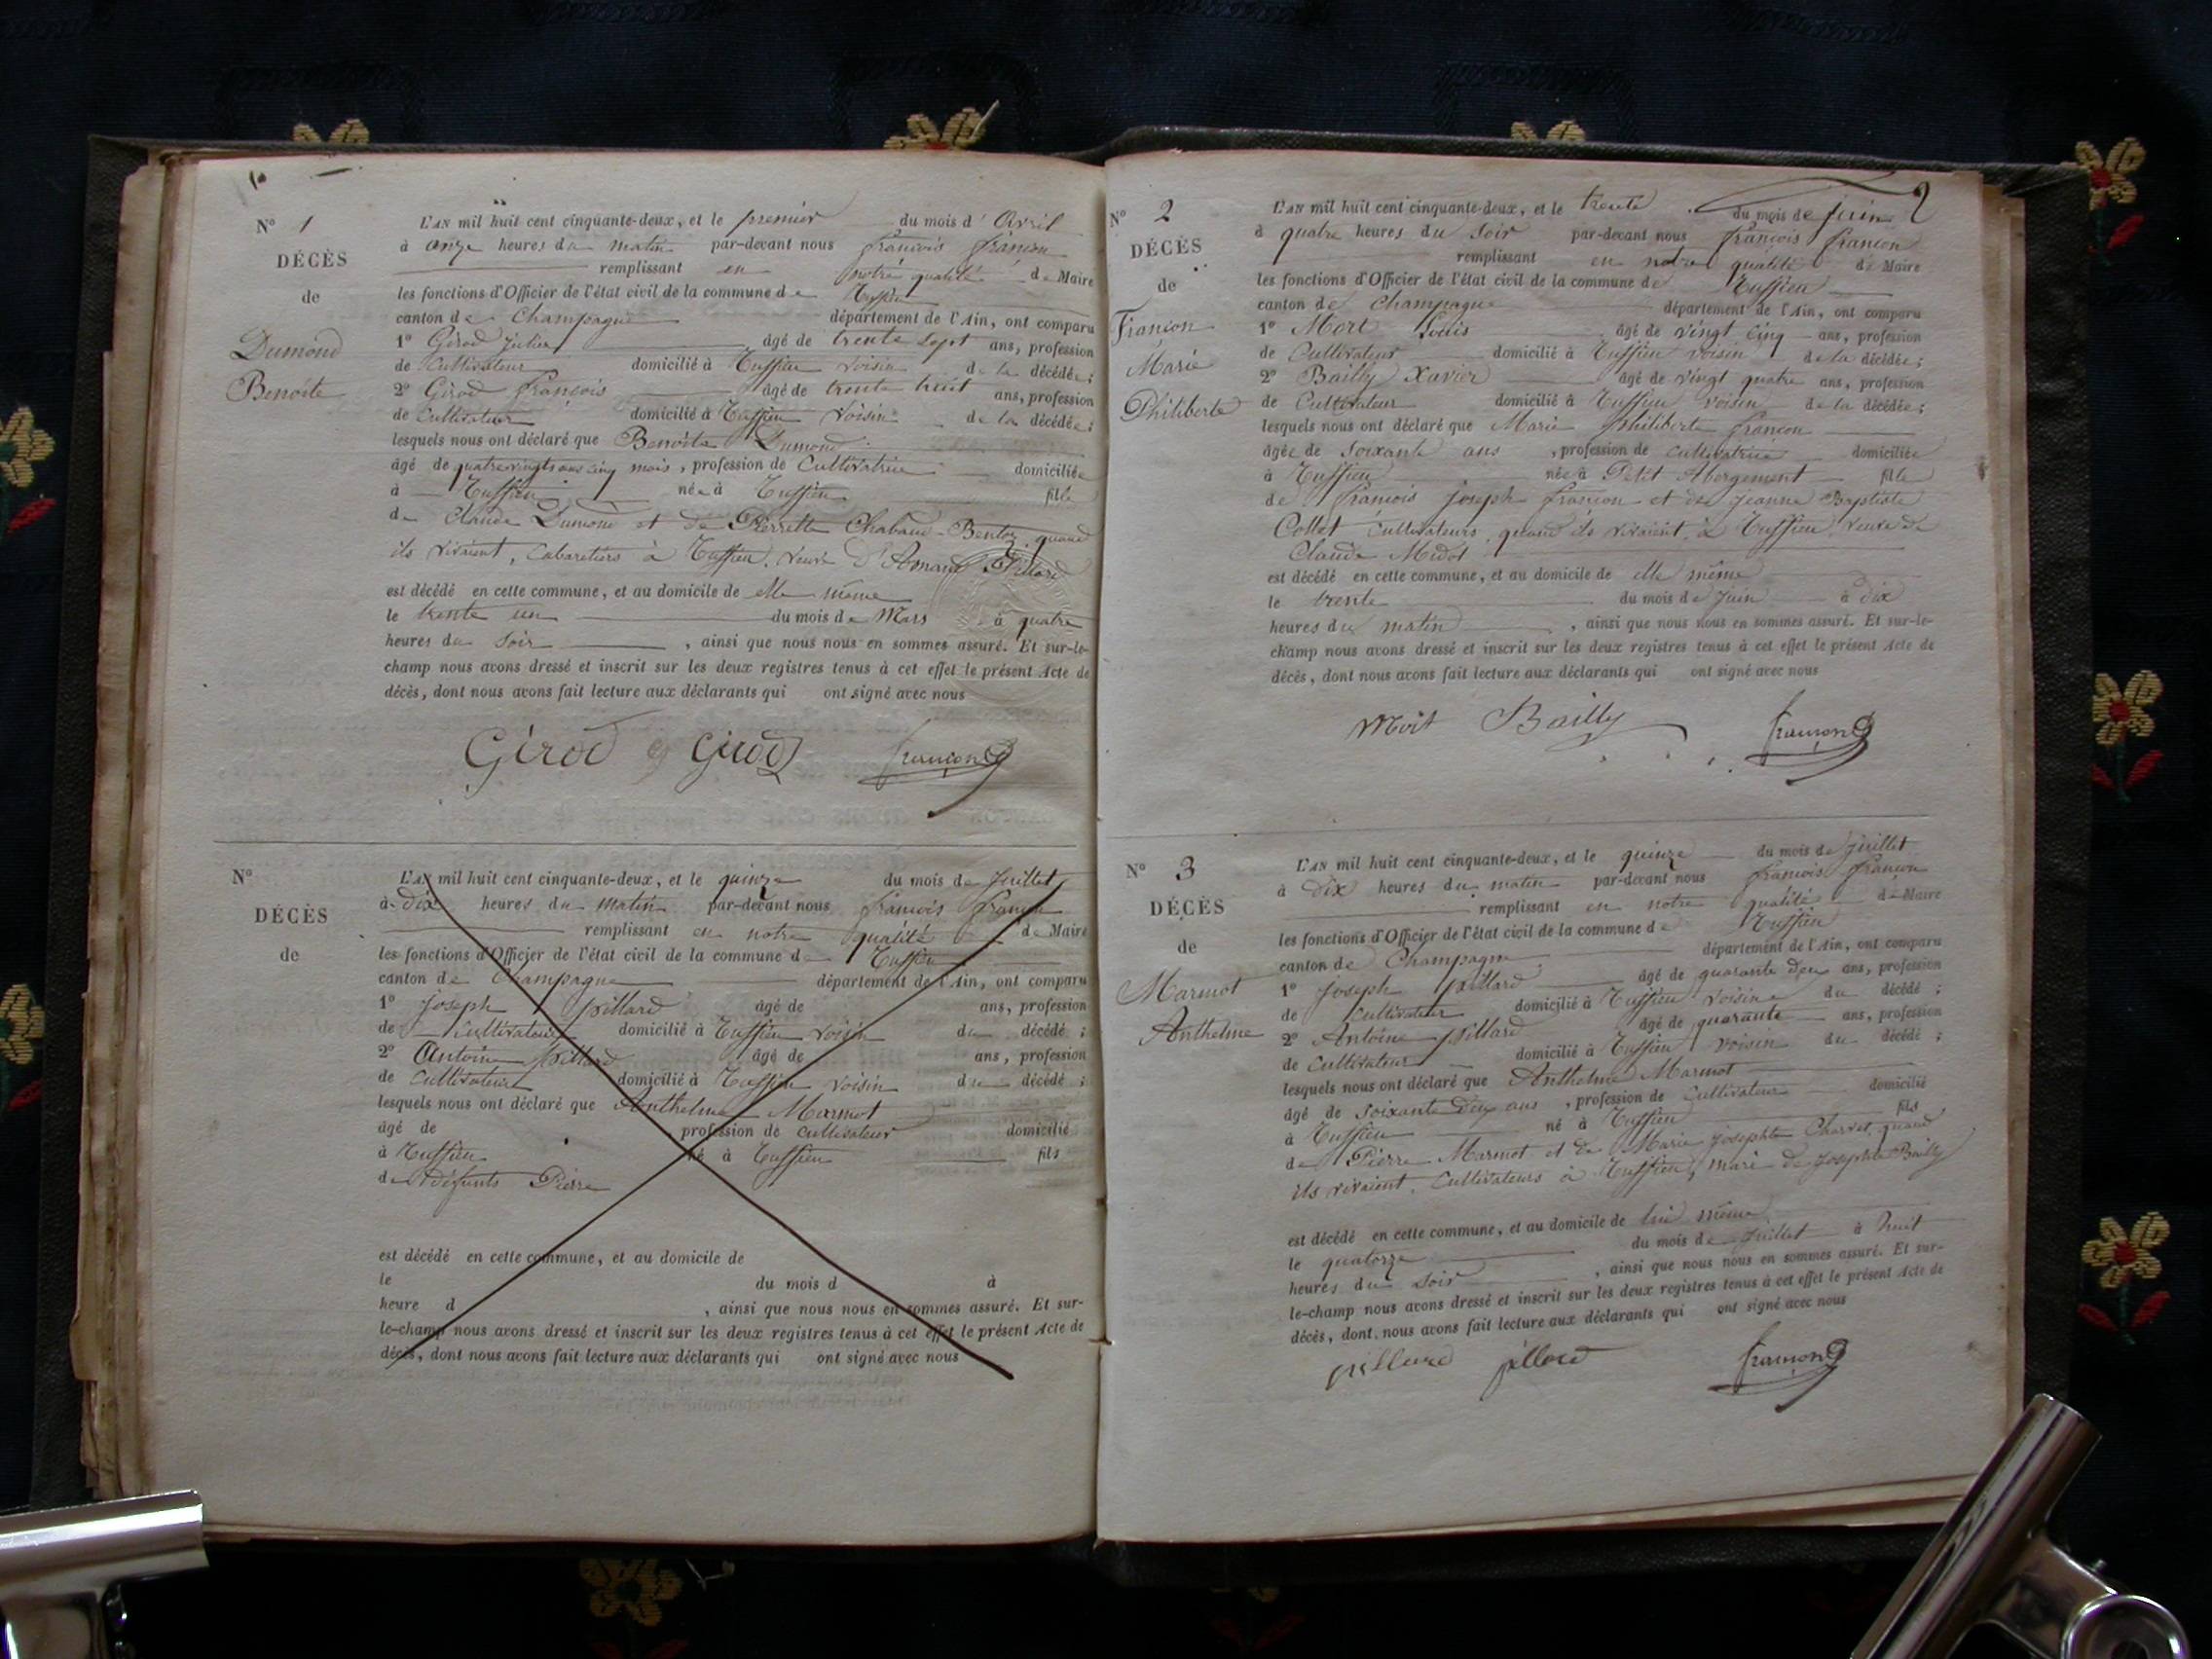 N° 1
DÉCÈS
de
Dumond
Benoite
L'AN mil huit cent cinquante-deux, et le premier du mois d'Avril
à onze heures du matin par-devant nous françois françon
remplissant en notre qualité de Maire
les fonctions d'Officier de l'état civil de la commune de Ruffieu
canton de Champagne département de l'Ain, ont comparu
1° Girod Julien âgé de trente sept ans, profession
de Cultivateur domicilié à Ruffieu voisin de la décédée;
2° Girod françois âgé de trente huit ans, profession
de Cultivateur domicilié à Ruffieu voisin de la décédée;
lesquels nous ont déclaré que Benoite Dumond
âgé de quatre vingts ans cinq mois, profession de Cultivatrice domiciliée
à Ruffieu née à Ruffieu fille
de Claude Dumond et de Pierrette Chabaud-Bentoz quand
ils vivaient, Cabaretiers à Ruffieu, veuve d'Armand Pillard
est décédé en cette commune, et au domicile de elle même
le trente un du mois de Mars à quatre
heures du soir, ainsi que nous nous en sommes assuré. Et sur-le-
champ nous avons dressé et inscrit sur les deux registres tenus à cet effet le présent Acte de
décès, dont nous avons fait lecture aux déclarants qui ont signé avec nous
Girod Girod françon
N°
DÉCÈS
de
L'AN mil huit cent cinquante-deux, et le quinze du mois de Juillet
à dix heures du matin par-devant nous françois françon
remplissant en notre qualité de Maire
les fonctions d'Officier de l'état civil de la commune de Ruffieu
canton de Champagne département de l'Ain, ont comparu
1° Joseph pillard âgé de ans, profession
de Cultivateur domicilié à Ruffieu voisin du décédé;
2° Antoine pillard âgé de ans, profession
de Cultivateur domicilié à Ruffieu voisin du décédé;
lesquels nous ont déclaré que Anthelme Marmot
âgé de profession de cultivateur domicilié
à Ruffieu né à Ruffieu fils
de défunts Pierre
est décédé en cette commune, et au domicile de
le du mois d à
heure d , ainsi que nous nous en sommes assuré. Et sur-
le-champ nous avons dressé et inscrit sur les deux registres tenus à cet effet le présent Acte de
décès, dont nous avons fait lecture aux déclarants qui ont signé avec nous
2
N° 2
DÉCÈS
de
Françon
Marie
Philiberte
L'AN mil huit cent cinquante-deux, et le trente du mois de juin
à quatre heures du soir par-devant nous françois françon
remplissant en notre qualité de Maire
les fonctions d'Officier de l'état civil de la commune de Ruffieu
canton de Champagne département de l'Ain, ont comparu
1° Mort Louis âgé de vingt cinq ans, profession
de Cultivateur domicilié à Ruffieu voisin de la décédée;
2° Bailly Xavier âgé de vingt quatre ans, profession
de Cultivateur domicilié à Ruffieu voisin de la décédée;
lesquels nous ont déclaré que Marie philiberte françon
âgée de soixante ans, profession de cultivatrice domiciliée
à Ruffieu née à Petit Abergement fille
de françois joseph françon et de jeanne Baptiste
Collet cultivateurs, quand ils vivaient, à Ruffieu veuve de
Claude Midol
est décédé en cette commune, et au domicile de elle même
le trente du mois de Juin à dix
heures du matin, ainsi que nous nous en sommes assuré. Et sur-le-
champ nous avons dressé et inscrit sur les deux registres tenus à cet effet le présent Acte de
décès, dont nous avons fait lecture aux déclarants qui ont signé avec nous
Mort Bailly françon
N° 3
DÉCÈS
de
Marmot
Anthelme
L'AN mil huit cent cinquante-deux, et le quinze du mois de Juillet
à dix heures du matin par-devant nous françois françon
remplissant en notre qualité de Maire
les fonctions d'Officier de l'état civil de la commune de Ruffieu
canton de Champagne département de l'Ain, ont comparu
1° Joseph pillard âgé de quarante deux ans, profession
de Cultivateur domicilié à Ruffieu voisin du décédé;
2° Antoine pillard âgé de quarante ans, profession
de Cultivateur domicilié à Ruffieu voisin du décédé;
lesquels nous ont déclaré que Anthelme Marmot
âgé de soixante deux ans, profession de Cultivateur domicilié
à Ruffieu né à Ruffieu fils
de Pierre Marmot et de Marie josephte Charvet, quand
ils vivaient, Cultivateurs à Ruffieu, mari de Josephte Bailly
est décédé en cette commune, et au domicile de lui même
le quatorze du mois de Juillet à huit
heures du soir, ainsi que nous nous en sommes assuré. Et sur-
le-champ nous avons dressé et inscrit sur les deux registres tenus à cet effet le présent Acte de
décès, dont nous avons fait lecture aux déclarants qui ont signé avec nous
pillard pillard françon